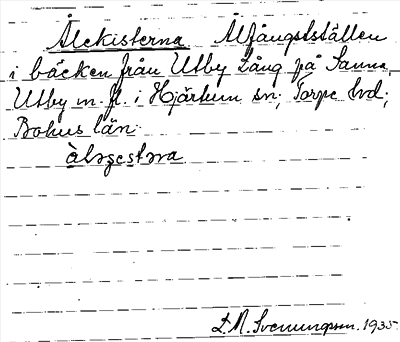 Ålekisterna Ålfångstställen
i bäcken från Utby Lång på Sanna,
Utby m. fl. i Hjärtum sn; Torpe hd;
Bohus län:
D. N. Svenungsson. 1935